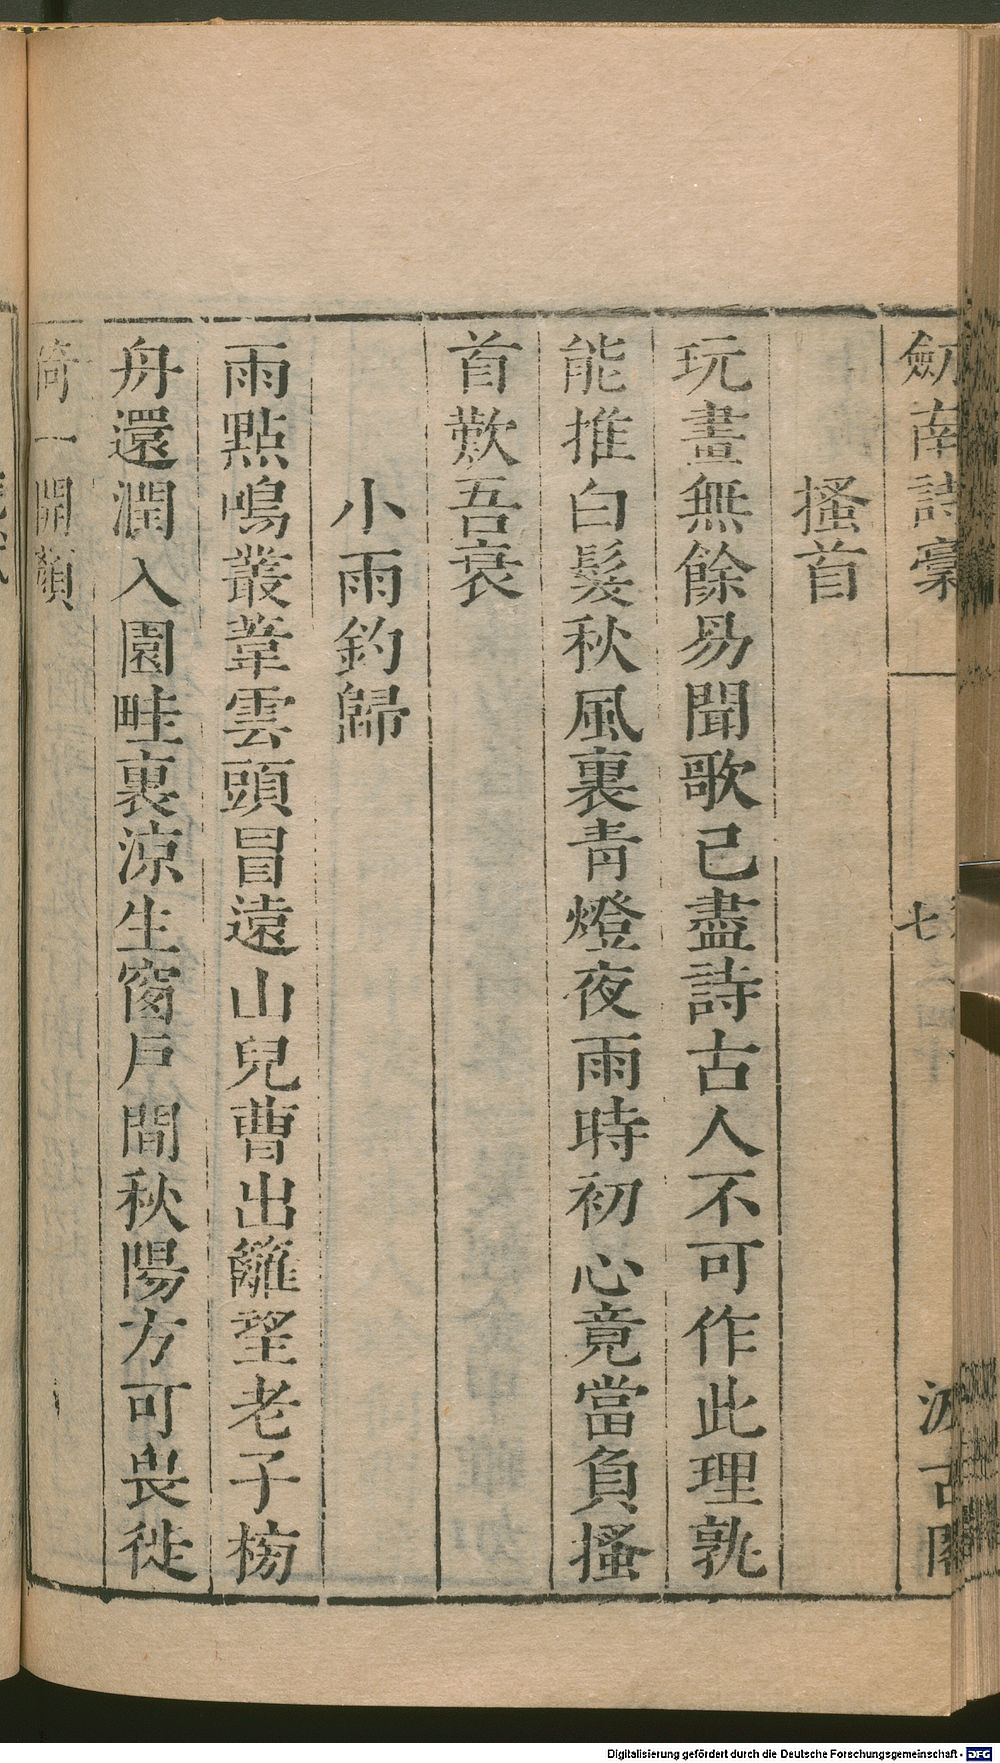 劒南詩稾
七
汲古閣
搔首
玩畫無餘易聞歌已盡詩古人不可作此理孰
能推白髮秋風裏青燈夜雨時初心竟當負搔
首歎吾衰
小雨釣歸
雨點鳴叢葦雲頭冒遠山兒曹出籬望老子榜
舟還潤入園畦裏涼生窗戶間秋陽方可畏徙
倚一開顏
Digitalisierung gefördert durch die Deutsche Forschungsgemeinschaft - DFG